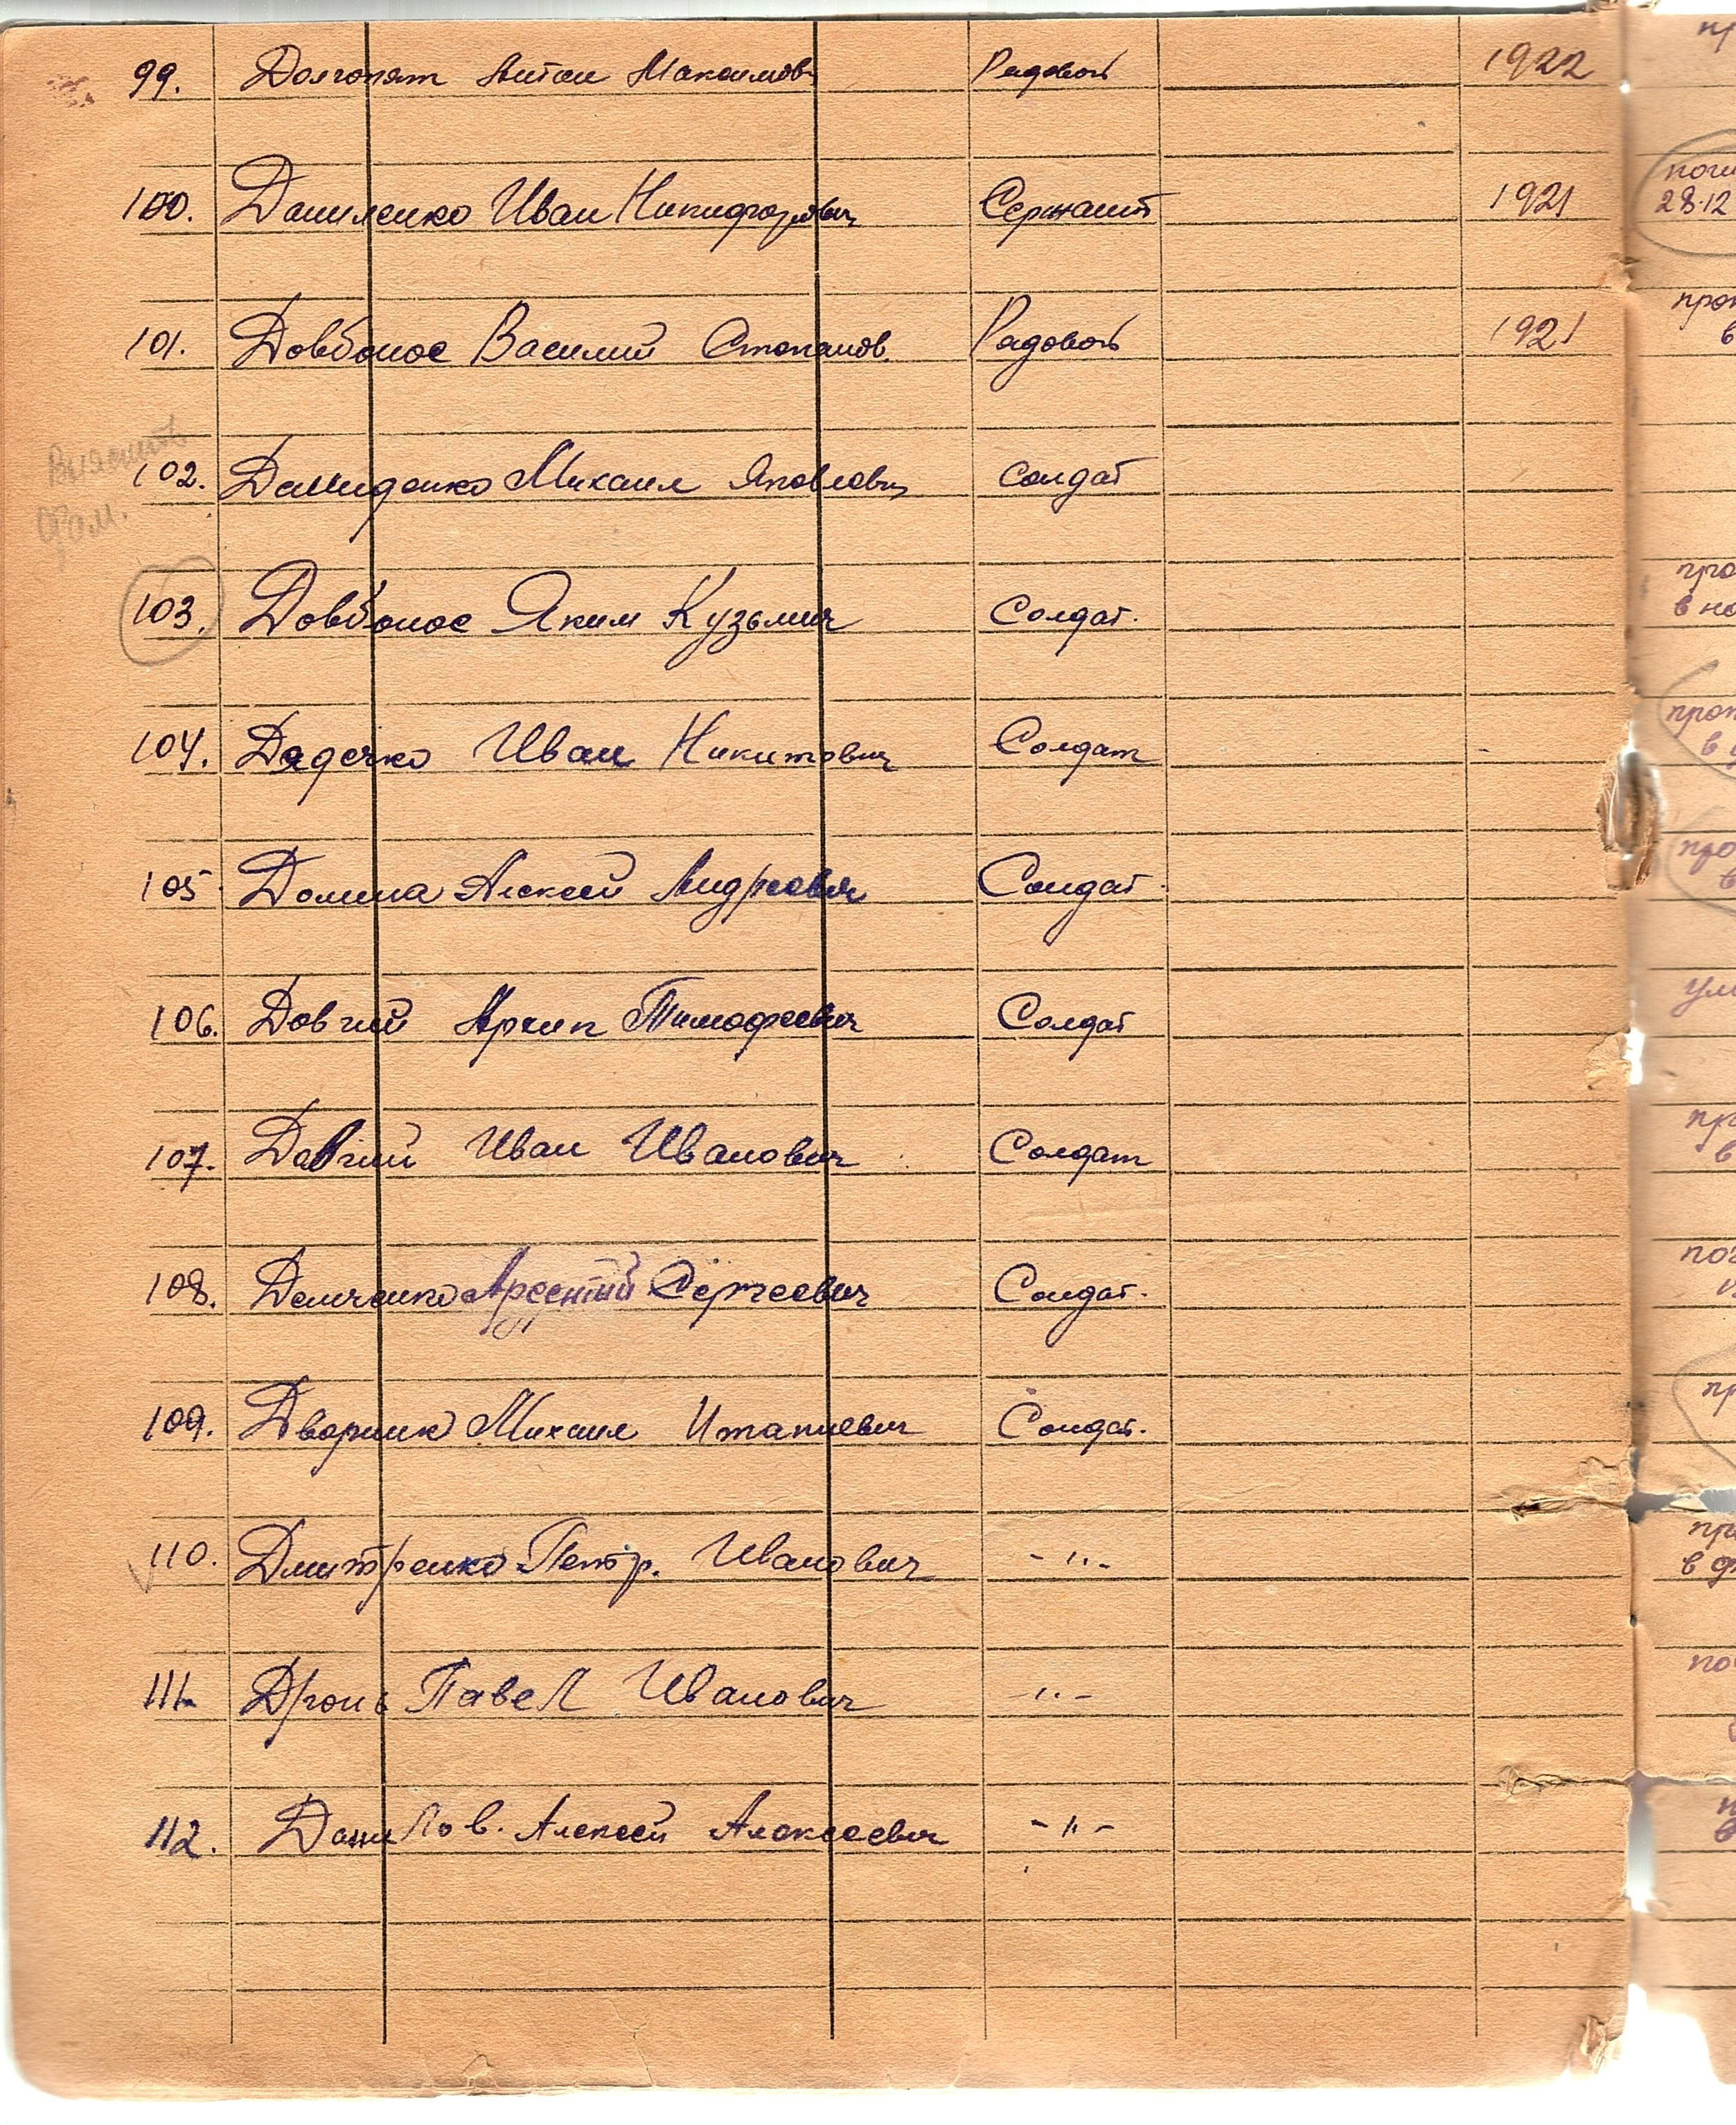 99. Долгопят Антон Максимов Рядовой 1922
100. Даниленко Иван Никифорович Сержант 1921
28.12
101. Довбонос Василий Степанов. Рядовой 1921
Выяснить
102. Демиденко Михаил Яковлевич солдат
фам.
103. Довбонос Яким Кузьмич Солдат.
104. Дядечко Иван Никитович Солдат
105 Домина Алексей Андреевич Солдат.
106. Довгий Архип Тимофеевич Солдат
107. Довгий Иван Иванович Солдат
108. Демченко Арсентий Сергеевич Солдат.
109. Дворник Михаил Солдат.
110. Дмитренко Петр. Иванович -"-
111. Дронь Павел Иванович -"-
112. Данилов. Алексей Алексеевич -"-